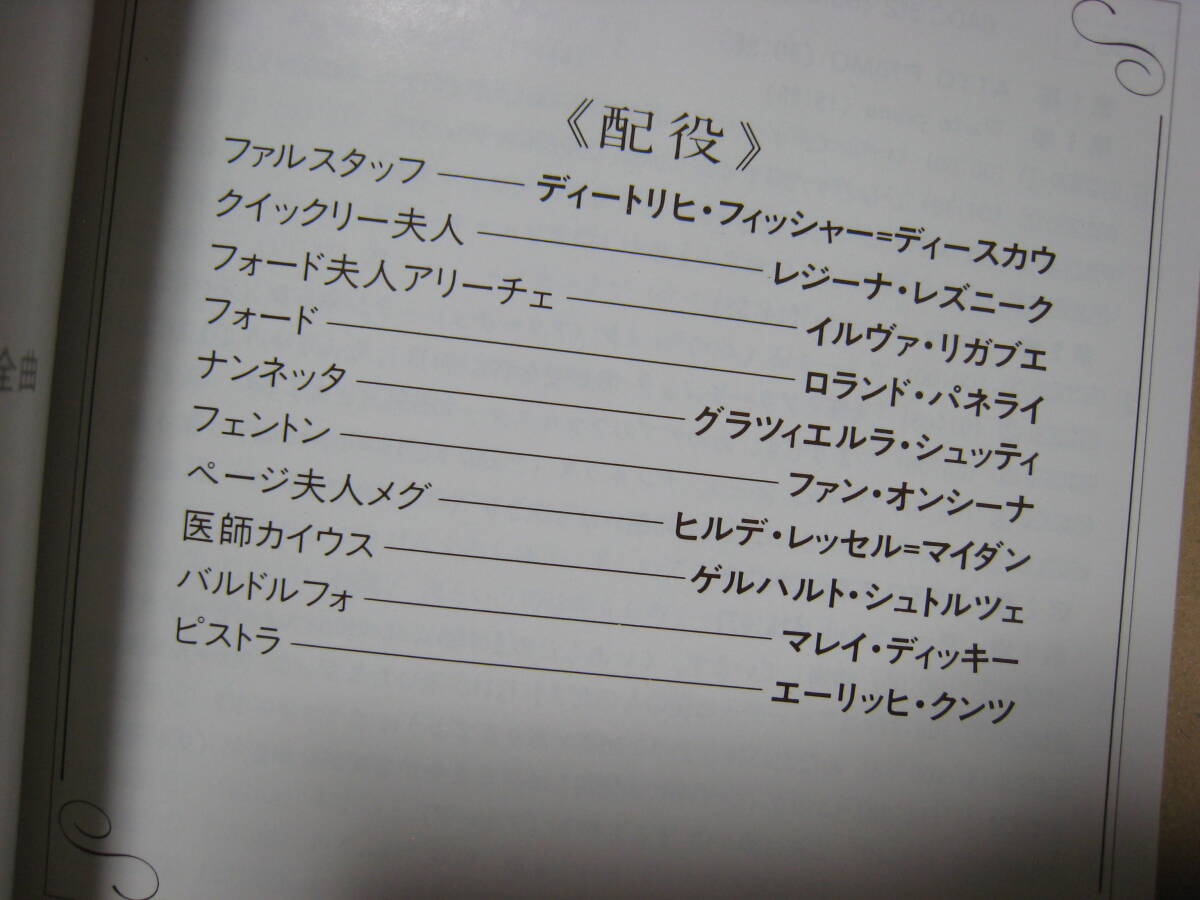 《配役》
ファルスタッフ――ディートリヒ・フィッシャー=ディースカウ
クイックリー夫人――レジーナ・レズニーク
フォード夫人アリーチェ――イルヴァ・リガブエ
フォード――ロランド・パネライ
ナンネッタ――グラツィエルラ・シュッティ
フェントン――ファン・オンシーナ
ページ夫人メグ――ヒルデ・レッセル=マイダン
医師カイウス――ゲルハルト・シュトルツェ
バルドルフォ――マレイ・ディッキー
ピストラ――エーリッヒ・クンツ
全曲